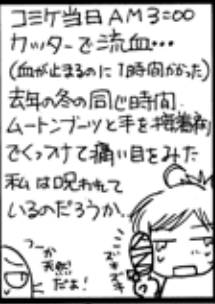 コミケ当日AM3:00
カッターで流血…
(血が止まるのに1時間かかった)
去年の冬の同じ時間
ムートンブーツと手を接着剤
でくっつけて痛い目をみた
私は呪われて
いるのだろうか。
ズキズキ
つーか
天然
だよ!